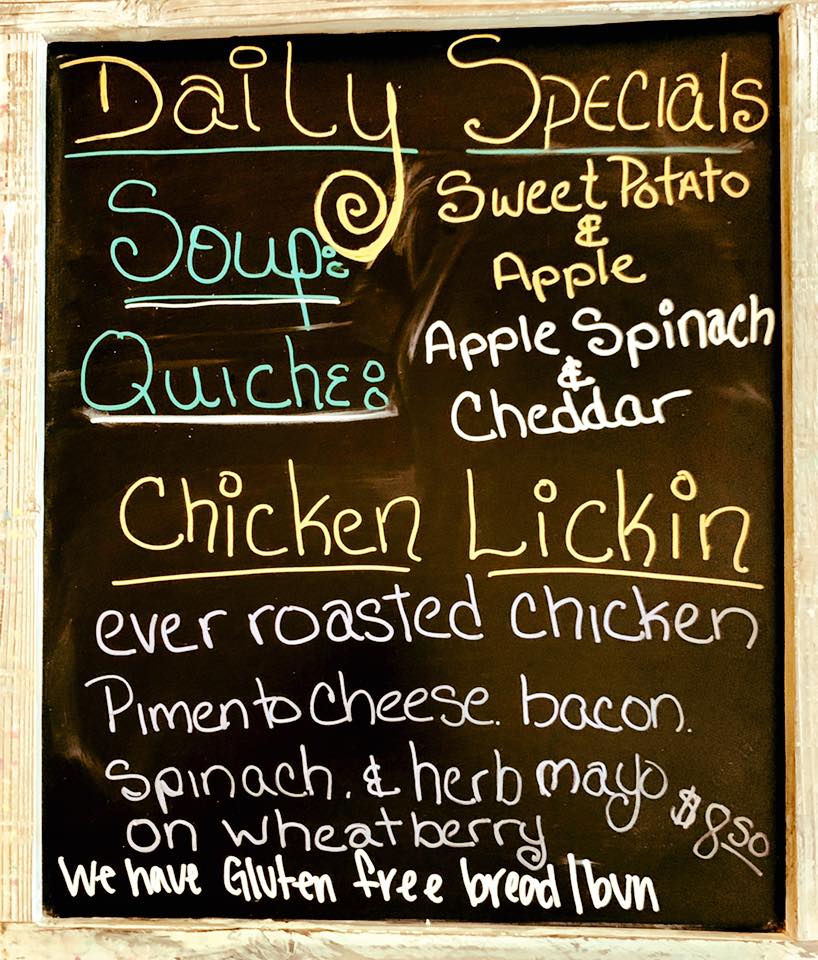 Daily Specials
Soup: Sweet Potato
&
Apple
Quiche: Apple Spinach
&
Cheddar
Chicken Lickin
ever roasted chicken
Pimento cheese. bacon.
Spinach. & herb mayo
on wheatberry $8.50
We have Gluten free bread/bun